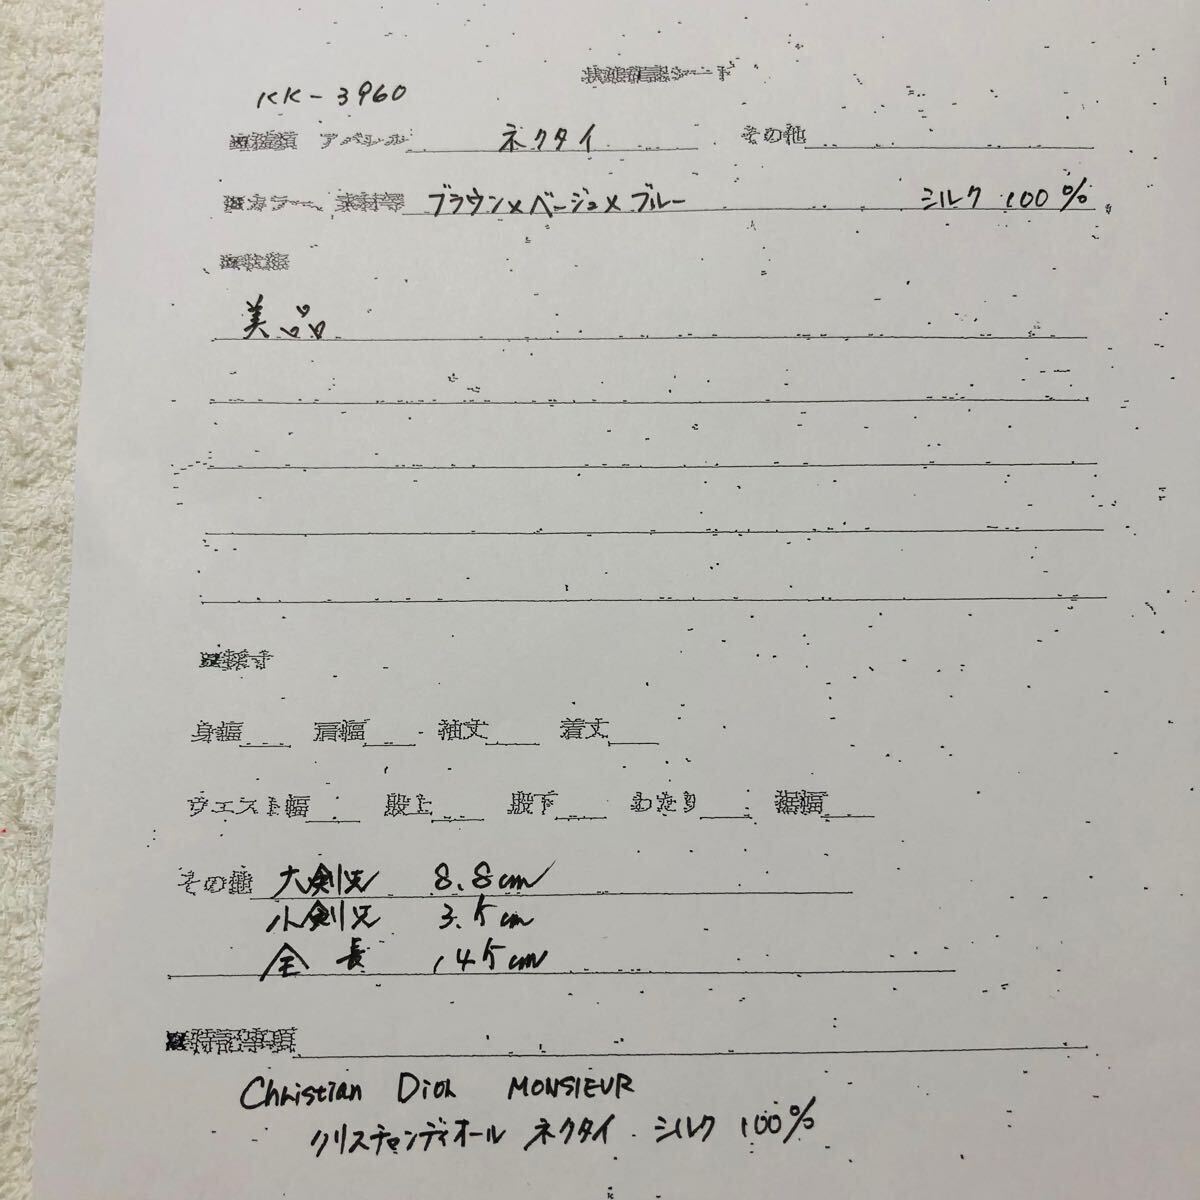 状態確認シート
KK-3960
種類 アパレル ネクタイ その他
カラー、素材等 ブラウン×ベージュ×ブルー シルク 100%
状態
美品
採寸
身幅 肩幅 袖丈 着丈
ウエスト幅 股上 股下 わたり 裾幅
その他 大剣先 8.8cm
小剣先 3.5cm
全長 145cm
特記事項
Christian Dior MONSIEUR
クリスチャンディオール ネクタイ シルク 100%